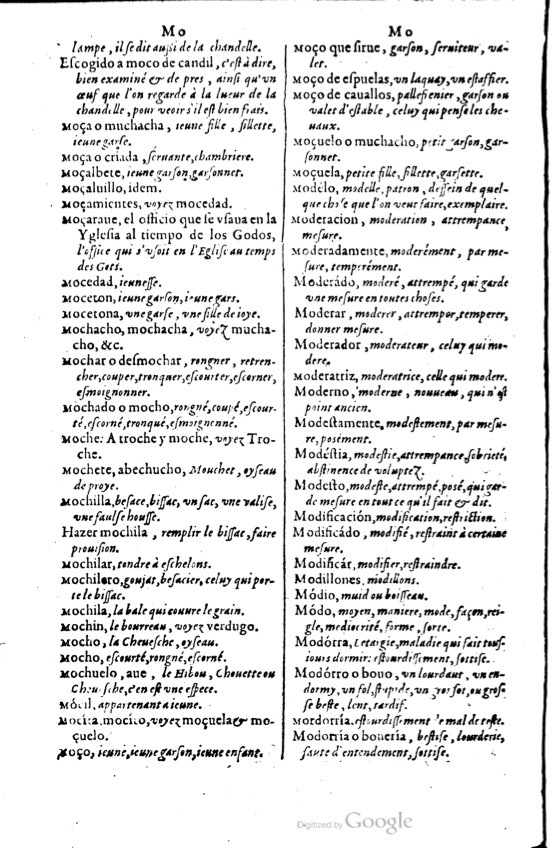 Mo
lampe, il se dit aussi de la chandelle.
Escogido a moco de candil, c'est à dire,
bien examiné & de pres, ainsi qu'vn
œuf que l'on regarde à la lueur de la
chandelle, pour veoir s'il est bien frais.
Moça o muchacha, ieune fille, fillette,
ieune garse.
Moça o criada, seruante, chambriere.
Moçalbete, ieune garson, garsonnet.
Moçaluillo, idem.
Moçamientes, voyez mocedad.
Moçaraue, el officio que se vsaua en la
Yglesia al tiempo de los Godos,
l'office qui s'vsoit en l'Eglise au temps
des Gots.
Mocedad, ieunesse.
Moceton, ieune garson, ieune gars.
Mocetona, vne garse, vne fille de ioye.
Mochacho, mochacha, voyez mucha-
cho, &c.
Mochar o desmochar, rongner, retren-
cher, couper, tronquer, escourter, escorner,
esmoignonner.
Mochado o mocho, rongné, coupé, escour-
té, escorné, tronqué, esmoignonné.
Moche: A troche y moche, voyez Tro-
che.
Mochete, abechucho, Mouchet, oyseau
de proye.
Mochilla, besace, bissac, vn sac, vne valise,
vne faulse housse.
Hazer mochila, remplir le bissac, faire
prouision.
Mochilar, tondre à eschelons.
Mochilero, goujat, besacier, celuy qui por-
te le bissac.
Mochila, la bale qui couure le grain.
Mochin, le bourreau, voyez verdugo.
Mocho, la Cheuesche, oyseau.
Mocho, escourté, rongné, escorné.
Mochuelo, aue, le Hibou, Chouette ou
Cheuesche, c'en est vne espece.
Móçil, appartenant a ieune.
Mocita, mocito, voyez moçuela & mo-
çuelo.
Moço, ieune, ieune garson, ieune enfant.
Mo
Moço que sirue, garson, seruiteur, va-
let.
Moço de espuelas, vn laquay, vn estaffier.
Moço de cauallos, pallefrenier, garson ou
valet d'estable, celuy qui pense les che-
uaux.
Moçuelo o muchacho, petit garson, gar-
sonnet.
Moçuela, petite fille, fillette, garsette.
Modélo, modelle, patron, dessein de quel-
que chose que l'on veut faire, exemplaire.
Moderacion, moderation, attrempance,
mesure.
Moderadamente, moderément, par me-
sure, temperément.
Moderádo, moderé, attrempé, qui garde
vne mesure en toutes choses.
Moderar, moderer, attremper, temperer,
donner mesure.
Moderador, moderateur, celuy qui mo-
dere.
Moderatriz, moderatrice, celle qui modere.
Moderno, moderne, nouueau, qui n'est
point ancien.
Modestamente, modestement, par mesu-
re, posément.
Modéstia, modestie, attrempance, sobrieté,
abstinence de voluptez.
Modesto, modeste, attrempé, posé, qui gar-
de mesure en tout ce qu'il fait & dit.
Modificación, modification, restriction.
Modificádo, modifié, restraint à certaine
mesure.
Modificár, modifier, restraindre.
Modillones, modillons.
Módio, muid ou boisseau.
Módo, moyen, maniere, mode, façon, rei-
gle, mediocrité, forme, sorte.
Modórra, Letargie, maladie qui fait tous-
iours dormir: estourdissement, sottise.
Modórro o bouo, vn lourdaut, vn en-
dormy, vn fol, stupide, vn gros sot, ou gros-
se beste, lent, tardif.
Mordorria, estourdissement, le mal de teste.
Modorria o boueria, bestise, lourderie,
faute d'entendement, sottise.
Digitized by Google